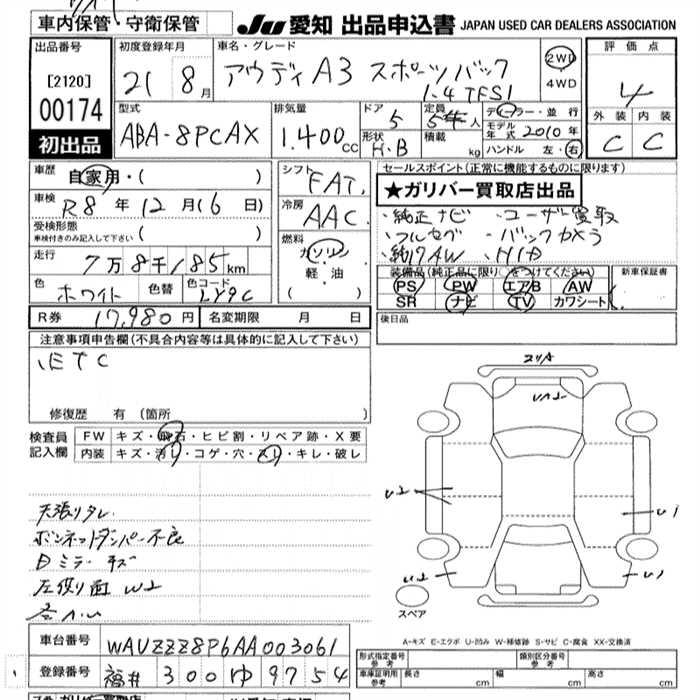 車内保管・守衛保管
JU 愛知 出品申込書 JAPAN USED CAR DEALERS ASSOCIATION
出品番号
[2120]
00174
初出品
初度登録年月
21 8月
車名・グレード
アウディ A3 スポーツバック
1.4 TFSI
2WD
4WD
評価点
4
外装 内装
C C
型式
ABA-8PCAX
排気量
1.400cc
ドア
5
形状
H.B
定員
5人
積載
kg
ディーラー・並行
モデル年式 2010年
ハンドル 左・右
車歴
自家用・( )
車検
R8年 12月(6日)
受検形態
車検付きのみ記入して下さい ( )
走行
7万8千185km
色
ホワイト
色替
色コード
LY9C
シフト
FAT
冷房
AAC
燃料
ガソリン
軽・油
( )
セールスポイント(正常に機能するものに限ります)
★ガリバー買取店出品
・純正ナビ ・ユーザー買取
・フルセグ ・バックカメラ
・純17AW ・HID
装備品(純正品に限り○をつけてください)
PS PW エアB AW
SR ナビ TV カワシート
新車保証書
R券 17,980円
名変期限 月 日
後日品
注意事項申告欄(不具合内容等は具体的に記入して下さい)
ETC
修復歴 有(箇所 )
検査員記入欄
FW キズ・飛石・ヒビ割・リペア跡・X要
内装 キズ・汚レ・コゲ・穴・スレ・キレ・破レ
天張りタレ
ボンネットダンパー不良
左後り面 W2
U2
U1
U2
U1
スペア
A-キズ E-エクボ U-凹み W-補修跡 S-サビ C-腐食 XX-交換済
車台番号
WAUZZZ8P6AA003061
登録番号
福井 300 ゆ 9754
型式指定番号
参考
類別区分番号
参考
車庫証明用
参考
長さ cm
幅 cm
高さ cm